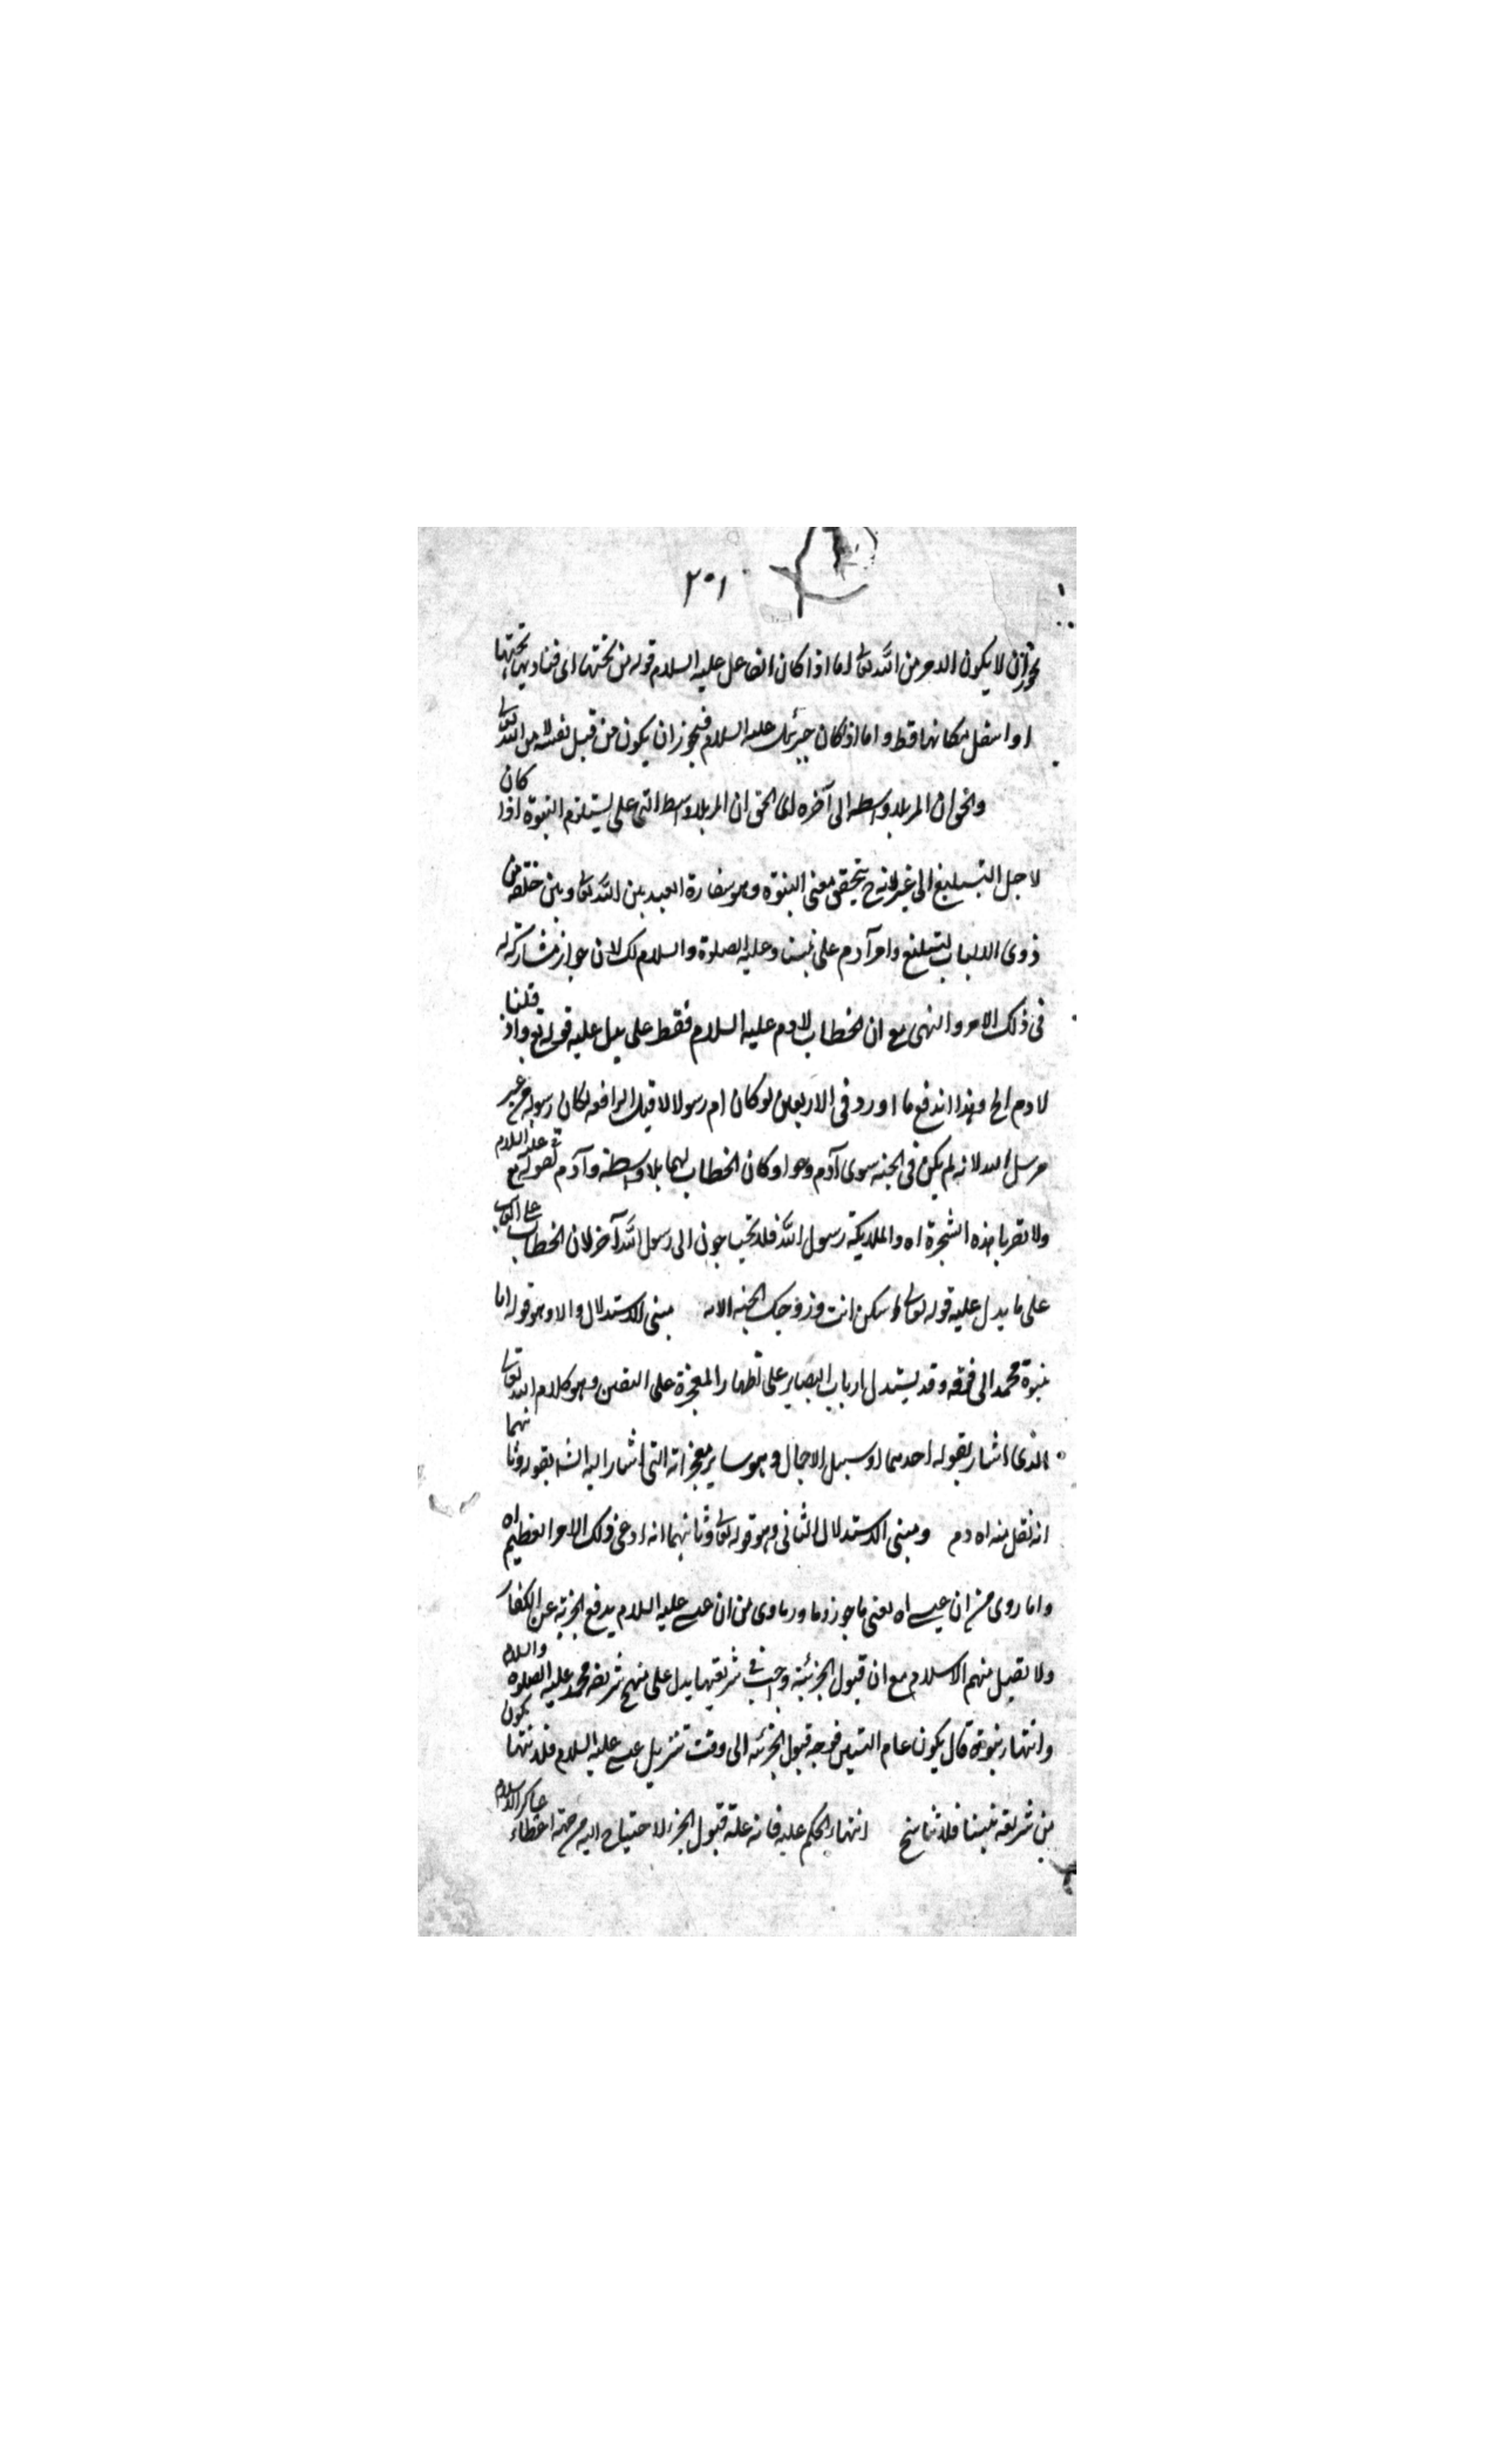 ٢٠١
يجوز ان لا يكون الامر من الله تعالى اما اذا كان الفاعل عليه السلام قوله من تحتها اى فناديها تحتها
او اسفل مكانها قط واما اذا كان جبرئيل عليه السلام فيجوز ان يكون من قبل نفسه لا من الله تعالى
والحق ان الامر بلا واسطه الى آخره اى الحق ان الامر بلا واسطه التى على يستلزم النبوة اذا كان
لاجل التبليغ الى غيره لانه ح يتحقق معنى النبوة وهو سفارة العبد بين الله تعالى وبين خلقه من
ذوى الالباب لتبليغ وامر آدم على نبينا وعليه الصلوة والسلام كك لان جواز مشاركة له
فى ذلك الامر والنهى مع ان الخطاب لادم عليه السلام فقط على يدل عليه قوله تع واذ قلنا
لادم الخ وبهذا اندفع ما اورد فى الاربعين لو كان ادم رسولا لاقبل الواقعه لكان رسولا من غير
مرسل اليه لانه لم يكن فى الجنه سوى آدم وحوا وكان الخطاب لهما بلا واسطه وآدم عليه السلام لقوله تع
ولا تقربا هذه الشجرة اه والملائكة رسول الله فلا تحتاجون الى رسول الله آخر لان الخطاب
على ما يدل عليه قوله تعالى اسكن انت وزوجك الجنه الايه مبنى الاستدلال والاو هو قوله اما
نبوة محمد الى فوقه وقد يستدل ارباب البصاير على اظهار المعجزة على اليقين وهو كلام الله تعالى
الذى اشار بقوله احدهما او سبيل الاجمال وهو ساير معجزاته التى اشار اليه الشا بقوله وثانيهما
انه نقل منه اه دم ومبنى الاستدلال الثانى وهو قوله تعالى وثانيهما انه ادعى ذلك الامر العظيم اه
واما روى من ان عيسى اه يعنى ما جوز وما روى من ان عيسى عليه السلام يدفع الجزية عن الكفار
ولا تقبل منهم الا الاسلام مع ان قبول الجزئية وجب فى شريعتها يدل على منهج شريعه محمد عليه الصلوة والسلام
وانتهاء نبوته قال يكون عام التبيين فوجه قبول الجزئه الى وقت تنزيل عيسى عليه السلام فلا انتها يكون
من شريعه نبينا فلا تناسخ انتهاء الحكم عليه فانه علة قبول الجزء لاحتياج اليه من جهة اعطاء عساكر الاسلام